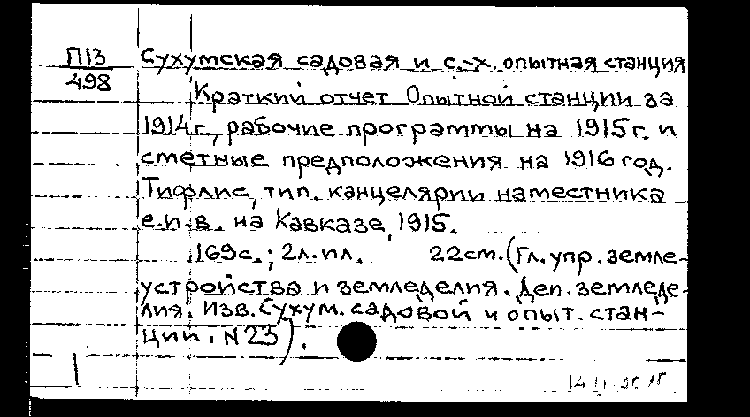 П13
498
Сухумская садовая и с.-х. опытная станция
Краткий отчет Опытной станции за
1914г., рабочие программы на 1915г. и
сметные предположения на 1916 год.
Тифлис, тип. канцелярии наместника
е.и.в. на Кавказе, 1915.
169с.; 2л.пл. 22см. (Гл. упр. земле-
устройства и земледелия. Деп. земледе-
лия. Изв. Сухум. садовой и опыт. стан-
ции. N23).